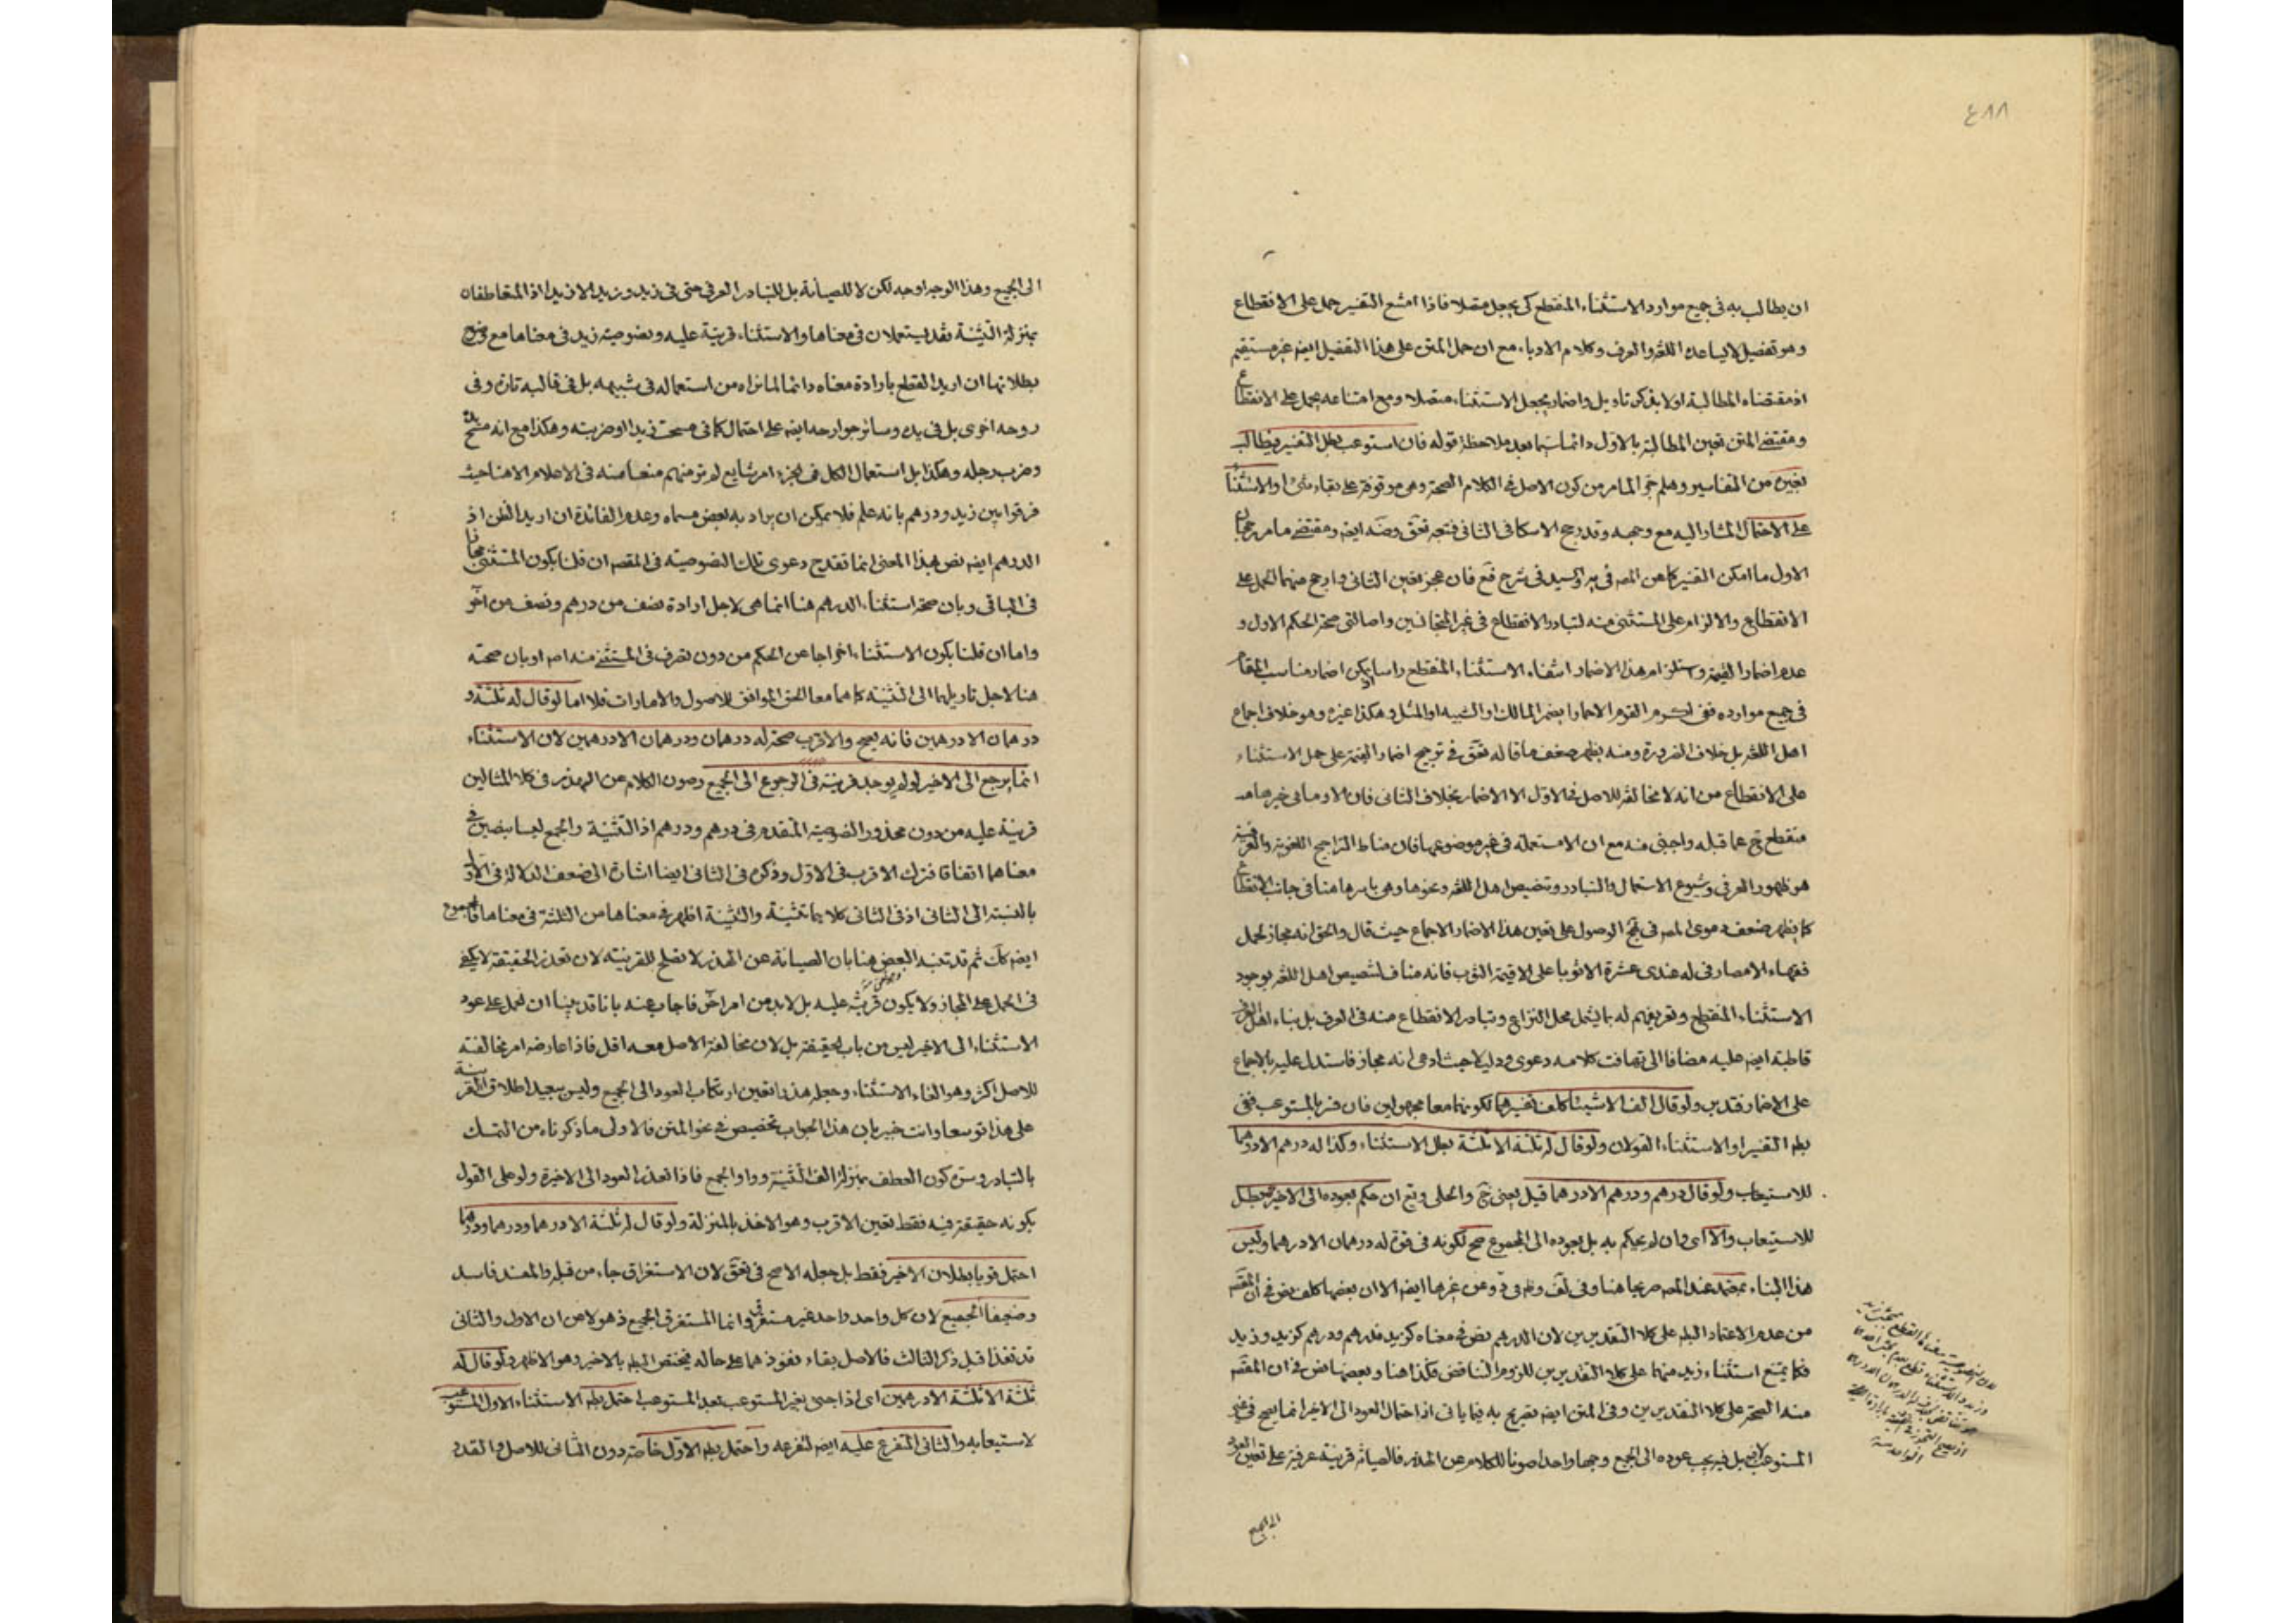 ٤٨٨
ان يطالب به فى جميع موارد الاستثناء المنقطع كى يجعل متصلا فاذا امتنع التفسير حمل على الانقطاع
وهو تفصيل لا يساعده اللغة والعرف وكلام الادباء مع ان حمل المتن على هذا التفصيل ايضا غير مستقيم
اذ مقتضاه المطالبة اولا بذكر تاويل واضمار يجعل الاستثناء متصلا ومع امتناعه يحمل على الانقطاع
ومقتضى المتن تعيين المطالبة بالاول دائما سيما بعد ملاحظة قوله فان استوعب بطل التفسير فيطالب
بغيره من التفاسير وهلم جرا لما مر من كون الاصل فى الكلام الصحة وهى موقوفة على بقاء شئ او الاستثناء
على الاحتمال المشار اليه مع وجهه وقد رجح الاسكافى الثانى فتجه تعق وضه ايضا ومقتضى ما مر رجحان
الاول ما امكن التفسير كما عن المصـ فى ير والسيد فى شرح فع فان عجز تعين الثانى وارجح منهما الحمل على
الانقطاع والالزام على المستثنى منه لتبادر الانقطاع فى غير المتجانسين واصالتى صحة الحكم الاول و
عدم اضمار القيمة وستلزام هذا الاضمار انتفاء الاستثناء المنقطع راسا لامكن اضمار مناسب المقام
فى جميع موارده ففى القوم الاحمارا يضمر المالك او الشبيه او المثل وهكذا غيره وهو خلاف اجماع
اهل اللغة بل خلاف الضرورة ومنه يظهر ضعف ما قاله تعق فى ترجيح اضمار القيمة على حمل الاستثناء
على الانقطاع من انه لا مخالفة للاصل فى الاول الا الاضمار بخلاف الثانى فان الا وما بى خبرها
منقطع ح عما قبله واجنبى منه مع ان الا مستعملة فى غير موضوعها فان مناط التراجيح اللغوية والعرفية
هو ظهور العرفى وشيوع الاستعمال والتبادر وتخصيص اهل اللغة ونحوها وهى باسرها هنا فى جانب الانقطاع
كما يظهر ضعف دعوى المصـ فى نهج الوصول على تعين هذا الاضمار الاجماع حيث قال والحق انه مجاز لحمل
فقهاء الامصار فى له عندى عشرة الا ثوبا على الا قيمة الثوب فانه مناف لتنصيص اهل اللغة بوجود
الاستثناء المنقطع وتعريفهم له بما يشمل محل النزاع وتبادر الانقطاع منه فى العرف بل بناء اهل العرف
قاطبة ايضا عليه مضافا الى تهافت كلامه دعوى ودليلا حيث ادعى انه مجاز فاستدل عليه بالاجماع
على الاضمار فتدبر ولو قال الف الا شيئا كلف تفسيرهما لكونهما معا مجهولين فان فسر بالمستوعب ففى
بطله التفسير او الاستثناء القولان ولو قال له ثلثة الا ثلثة بطل الاستثناء وكذا له درهم الا درهما
للاستيعاب ولو قال درهم ودرهم الا درهما قيل يعنى خ والحلى وتع ان حكم بعوده الى الاخير بطل
للاستيعاب والا اى وان لم يحكم به بل بعوده الى المجموع صح لكونه فى قوة له درهمان الا درهما وليس
هذا البناء بمعتمد عند المصـ صريحا هنا وفى لف وظه وفى د وعن غيرها ايضا الا ان بعضها كلف نص فى ان المقصـ
من عدم الاعتماد البطله على كلا التقديرين لان الدرهم نص فى معناه كزيد فدرهم ودرهم كزيد وزيد
فكما يمتنع استثناء زيد منهما على كلا التقديرين للزوم التناقض فكذا هنا وبعضها نص فى ان المقصـ
منه الصحة على كلا التقديرين وفى المتن ايضا تصريح به فيما ياتى اذ احتمال العود الى الاخير انما يصح فى غير
المستوعب لا فيه بل فيه يجب عوده الى الجميع وجها واحدا صونا للكلام عن الهذر فالصيانة قرينة عرفية على تعيين العود
الى الجميع
الى الجميع وهذا الوجه اوجه لكن لا للصيانة بل للتبادر العرفى حتى فى زيد وزيد الا زيدا اذ المتعاطفان
بمنزلة التثنية فقد يستعملان فى معناها والاستثناء قرينة عليه ونصوصية زيد فى معناها مع وضوح
بطلانها ان اريد القطع بارادة معناه دائما لما نراه من استعماله فى شبيهه بل فى قالبه تارة وفى
روحه اخرى بل فى يده وسائر جوارحه ايضا على احتمال كما فى مسحت زيدا او ضربته وهكذا مع انه مسح يده
وضرب رجله وهكذا بل استعمال الكل فى الجزء امر شايع لم تر منهم منعا منه فى الاعلام الا هنا حيث
فرقوا بين زيد ودرهم بانه علم فلا يمكن ان يراد به بعض مسماه وعدم الفائدة ان اريد الظن اذ
الدرهم ايضا نص بهذا المعنى انما تقدح دعوى تلك النصوصية فى المقصـ ان قلنا بكون المستثنى مجازا
فى الباقى وبان صحة استثناء الدرهم هنا انما هى لاجل ارادة نصف من درهم ونصف من اخر
واما ان قلنا بكون الاستثناء اخراجا عن الحكم من دون تصرف فى المستثنى منه اصـ او بان صحته
هنا لاجل تاويلهما الى التثنية كما هما معا الحق الموافق للاصول والامارات فلا اما لو قال له ثلثة و
درهمان الا درهمين فانه يصح والاقرب صحة له درهمان ودرهمان الا درهمين لان الاستثناء
انما يرجع الى الاخير لو لم يوجد قرينة فى الرجوع الى الجميع وصون الكلام عن الهذر فى كلا المثالين
قرينة عليه من دون محذور النصوصية المتقدم فى درهم ودرهم اذ التثنية والجمع ليسا بنصين فى
معناهما اتفاقا فترك الاقرب فى الاول وذكره فى الثانى ايضا اشارة الى ضعف الدلالة فى الاول
بالنسبة الى الثانى اذ فى الثانى كلاهما تثنية والتثنية اظهر فى معناها من الثلثة فى معناها
ايضا كك ثم قد تعبد البعض هنا بان الصيانة عن الهذر لا تصلح للقرينية لان تعذر الحقيقة لا يكفى
فى الحمل على المجاز ولا يكون قرينة عليه بل لابد من امر اخر فاجاب عنه بانا قد بينا ان الحمل على عود
الاستثناء الى الاخير ليس من باب الحقيقة بل لان مخالفة الاصل معه اقل فاذا عارضه امر مخالفته
للاصل اكثر وهو الغاء الاستثناء وجعله هذرا تعين ارتكاب العود الى الجميع وليس ببعيد اطلاق القرينة
على هذا توسعا وانت خبير بان هذا الجواب تخصيص فى نحو المتن فالاولى ما ذكرناه من التمسك
بالتبادر وسره كون العطف بمنزلة الف التثنية وواو الجمع فاذا تعذر العود الى الاخيرة ولو على القول
بكونه حقيقة فيه فقط تعين الاقرب وهو الاخذ بالمنزلة ولو قال له ثلثة الا درهما ودرهما ودرهما
احتمل قويا بطلان الاخير فقط بل جعله الاصح فى تعق لان الاستغراق جاء من قبله والمفسد فاسد
وضعيفا الجميع لان كل واحد واحد غير مستغرق وانما المستغرق الجميع ذهولا من ان الاول والثانى
قد نفذا قبل ذكر الثالث فالاصل بقاء نفوذهما على حاله فيختص البطله بالاخير وهو الاظهر ولو قال له
ثلثة الا ثلثة الا درهمين اى اذا جئ بغير المستوعب بعد المستوعب احتمل بطله الاستثناء الاول المستوعب
لاستيعابه والثانى المتفرع عليه ايضا لتفرعه واحتمل بطله الاول خاصة دون الثانى للاصل والقدر